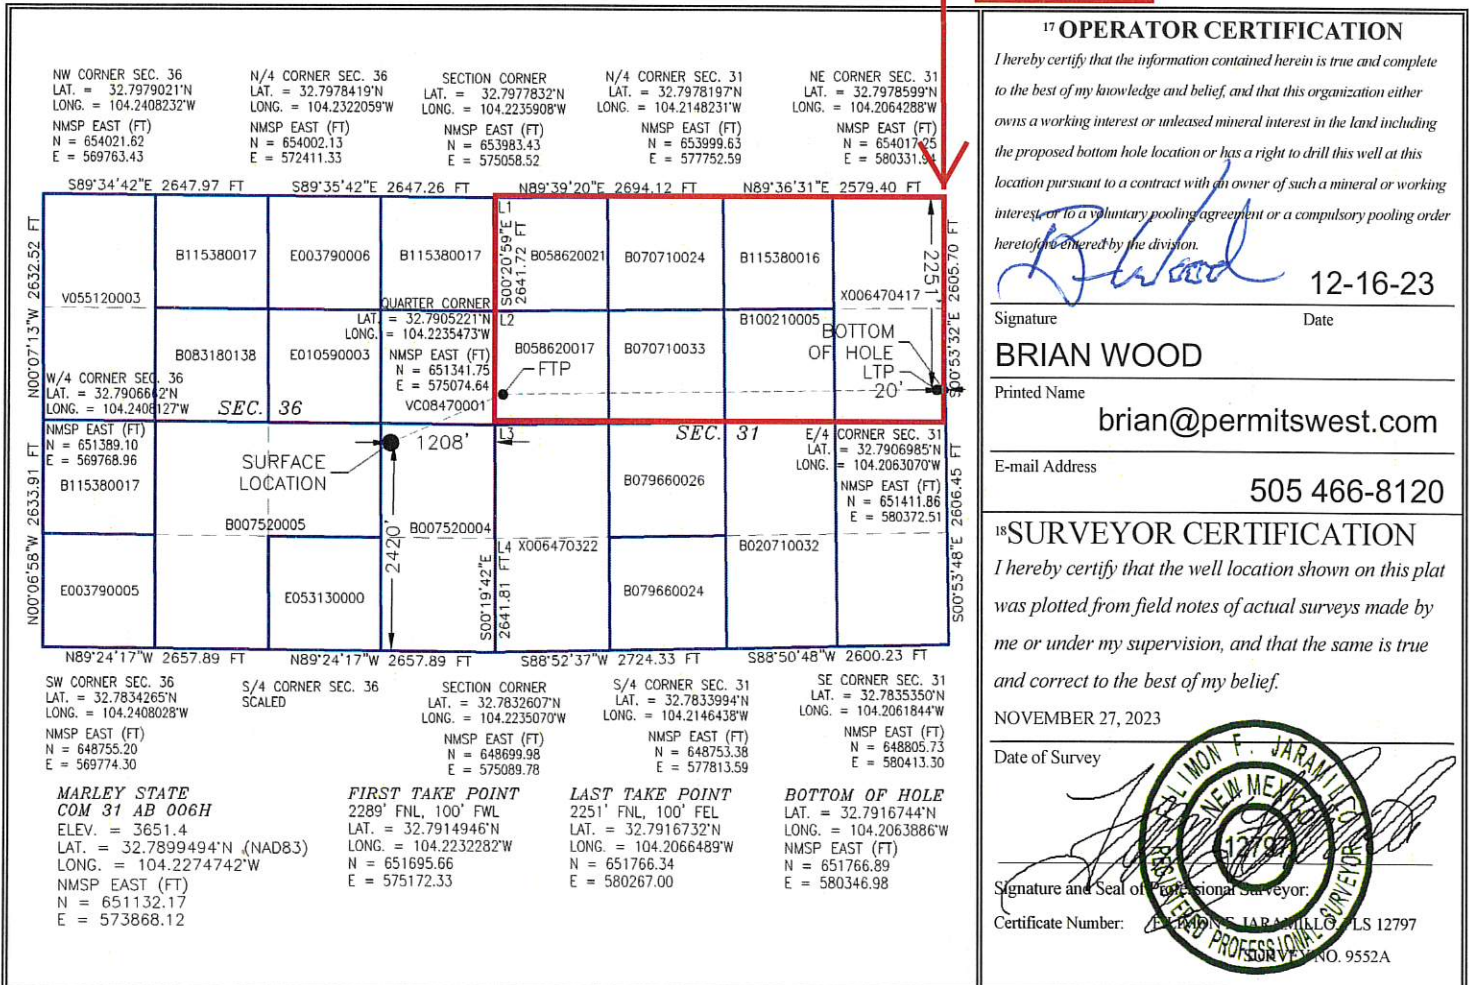 NW CORNER SEC. 36
LAT. = 32.7979021'N
LONG. = 104.2408232'W
NMSP EAST (FT)
N = 654021.62
E = 569763.43
N/4 CORNER SEC. 36
LAT. = 32.7978419'N
LONG. = 104.2322059'W
NMSP EAST (FT)
N = 654002.13
E = 572411.33
SECTION CORNER
LAT. = 32.7977832'N
LONG. = 104.2235908'W
NMSP EAST (FT)
N = 653983.43
E = 575058.52
N/4 CORNER SEC. 31
LAT. = 32.7978197'N
LONG. = 104.2148231'W
NMSP EAST (FT)
N = 653999.63
E = 577752.59
NE CORNER SEC. 31
LAT. = 32.7978599'N
LONG. = 104.2064288'W
NMSP EAST (FT)
N = 654017.25
E = 580331.94
S89°34'42"E 2647.97 FT
S89°35'42"E 2647.26 FT
N89°39'20"E 2694.12 FT
N89°36'31"E 2579.40 FT
N00°07'13"W 2632.52 FT
V055120003
B115380017
E003790006
B115380017
L1
S00°20'59"E
2641.72 FT
B058620021
B070710024
B115380016
X006470417
2251'
S00°53'32"E 2605.70 FT
QUARTER CORNER
LAT. = 32.7905221'N
LONG. = 104.2235473'W
NMSP EAST (FT)
N = 651341.75
E = 575074.64
B083180138
E010590003
L2
B058620017
B070710033
B100210005
BOTTOM
OF HOLE
LTP
20'
FTP
VC08470001
W/4 CORNER SEC. 36
LAT. = 32.7906662'N
LONG. = 104.2408127'W
NMSP EAST (FT)
N = 651389.10
E = 569768.96
SEC. 36
SEC. 31
E/4 CORNER SEC. 31
LAT. = 32.7906985'N
LONG. = 104.2063070'W
NMSP EAST (FT)
N = 651411.86
E = 580372.51
1208'
L3
SURFACE
LOCATION
B115380017
B007520005
B007520004
2420'
B079660026
N00°06'58"W 2633.91 FT
L4
X006470322
B020710032
E003790005
E053130000
B079660024
S00°19'42"E
2641.81 FT
S00°53'48"E 2606.45 FT
N89°24'17"W 2657.89 FT
N89°24'17"W 2657.89 FT
S88°52'37"W 2724.33 FT
S88°50'48"W 2600.23 FT
SW CORNER SEC. 36
LAT. = 32.7834265'N
LONG. = 104.2408028'W
NMSP EAST (FT)
N = 648755.20
E = 569774.30
S/4 CORNER SEC. 36
SCALED
SECTION CORNER
LAT. = 32.7832607'N
LONG. = 104.2235070'W
NMSP EAST (FT)
N = 648699.98
E = 575089.78
S/4 CORNER SEC. 31
LAT. = 32.7833994'N
LONG. = 104.2146438'W
NMSP EAST (FT)
N = 648753.38
E = 577813.59
SE CORNER SEC. 31
LAT. = 32.7835350'N
LONG. = 104.2061844'W
NMSP EAST (FT)
N = 648805.73
E = 580413.30
MARLEY STATE
COM 31 AB 006H
ELEV. = 3651.4
LAT. = 32.7899494'N (NAD83)
LONG. = 104.2274742'W
NMSP EAST (FT)
N = 651132.17
E = 573868.12
FIRST TAKE POINT
2289' FNL, 100' FWL
LAT. = 32.7914946'N
LONG. = 104.2232282'W
N = 651695.66
E = 575172.33
LAST TAKE POINT
2251' FNL, 100' FEL
LAT. = 32.7916732'N
LONG. = 104.2066489'W
N = 651766.34
E = 580267.00
BOTTOM OF HOLE
LAT. = 32.7916744'N
LONG. = 104.2063886'W
NMSP EAST (FT)
N = 651766.89
E = 580346.98
17 OPERATOR CERTIFICATION
I hereby certify that the information contained herein is true and complete
to the best of my knowledge and belief, and that this organization either
owns a working interest or unleased mineral interest in the land including
the proposed bottom hole location or has a right to drill this well at this
location pursuant to a contract with an owner of such a mineral or working
interest, or to a voluntary pooling agreement or a compulsory pooling order
heretofore entered by the division.
B Wood
12-16-23
Signature Date
BRIAN WOOD
Printed Name
brian@permitswest.com
E-mail Address
505 466-8120
18 SURVEYOR CERTIFICATION
I hereby certify that the well location shown on this plat
was plotted from field notes of actual surveys made by
me or under my supervision, and that the same is true
and correct to the best of my belief.
NOVEMBER 27, 2023
Date of Survey
FILIMON F. JARAMILLO
NEW MEXICO
12797
REGISTERED PROFESSIONAL SURVEYOR
Signature and Seal of Professional Surveyor:
Certificate Number: FILIMON F. JARAMILLO, PLS 12797
SURVEY NO. 9552A